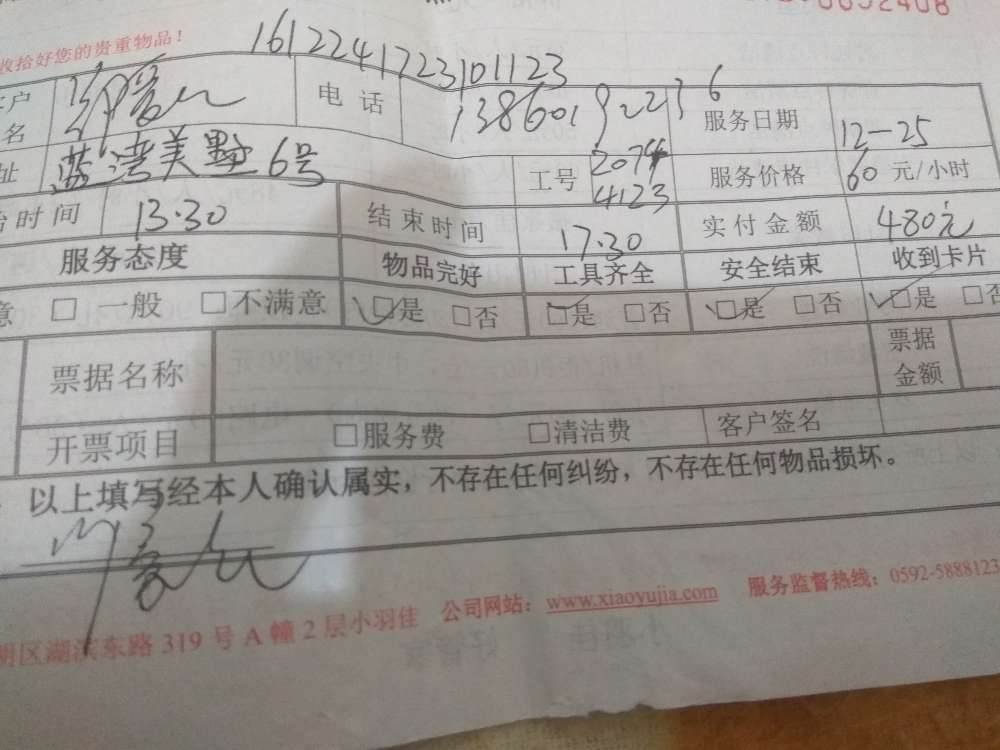 0092408
收拾好您的贵重物品！
161224172310 1123
客户 电话 服务日期 12-25
名
址 蓝湾美墅6号 工号 2074 4123 服务价格 60 元/小时
始时间 13.30 结束时间 17.30 实付金额 480元
服务态度 物品完好 工具齐全 安全结束 收到卡片
意 □ 一般 □不满意 □是 □否 □是 □否 □是 □否 □是 □否
票据名称 票据金额
开票项目 □服务费 □清洁费 客户签名
以上填写经本人确认属实，不存在任何纠纷，不存在任何物品损坏。
明区湖滨东路 319 号 A 幢 2 层小羽佳 公司网站：www.xiaoyujia.com 服务监督热线：0592-5888123